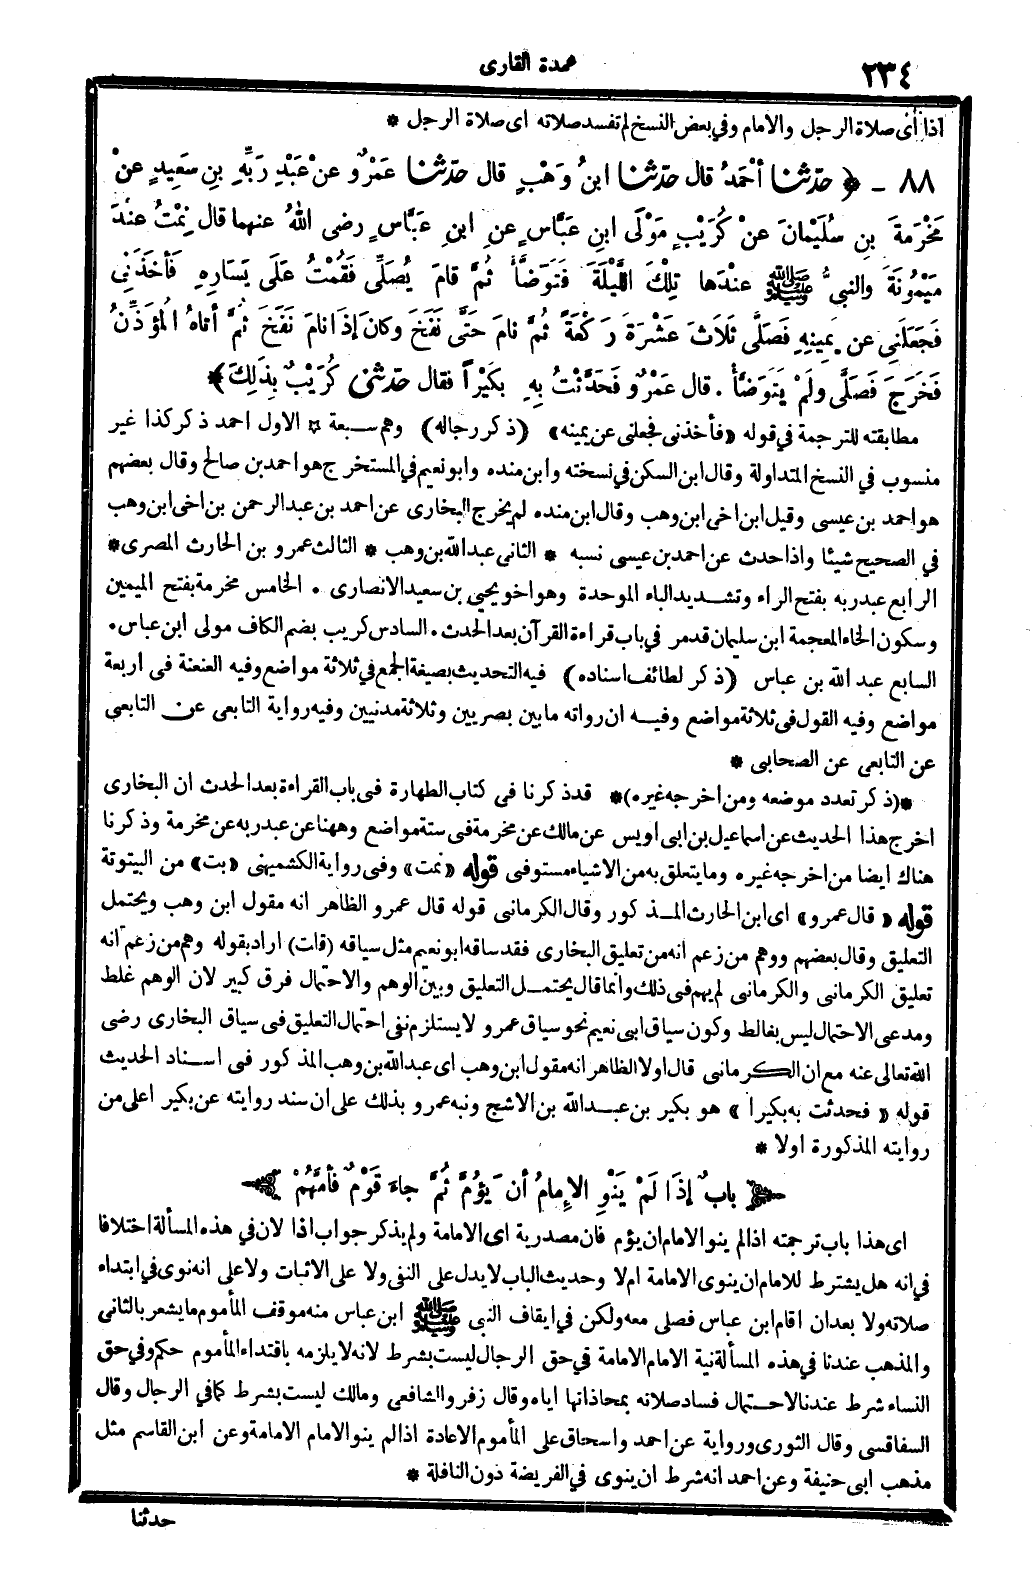 ٢٣٤
عمدة القارى
اذا أتى صلاة الرجل والامام وفي بعض النسخ لم تفسد صلاته اى صلاة الرجل *
٨٨ ـ ﴿ حَدَّثنا أحْمَدُ قال حَدَّثنا ابنُ وَهْبٍ قال حَدَّثنا عَمْرٌو عنْ عَبْدِ رَبِّهِ بنِ سَعِيدٍ عنْ
مَخْرَمَةَ بنِ سُلَيْمانَ عنْ كُرَيْبٍ مَوْلَى ابنِ عَبَّاسٍ عنِ ابنِ عَبَّاسٍ رضى اللهُ عنهما قال نِمْتُ عنْدَ
مَيْمُونَةَ والنبيُّ ﷺ عنْدَها تِلْكَ اللَّيْلَةَ فَتَوَضَّأَ ثُمَّ قامَ يُصَلِّى فَقُمْتُ عَلَى يَسَارِهِ فَأخَذَنِى
فَجَعَلَنِى عن يَمِينِهِ فَصَلَّى ثَلَاثَ عَشْرَةَ رَكْعَةً ثُمَّ نامَ حَتَّى نَفَخَ وكانَ إذَا نامَ نَفَخَ ثُمَّ أتاهُ المُؤَذِّنُ
فَخَرَجَ فَصَلَّى ولَمْ يَتَوَضَّأْ . قال عَمْرٌو فَحَدَّثْتُ بِهِ بكَيْراً فقال حَدَّثنى كُرَيْبٌ بِذَلِكَ ﴾
مطابقته للترجمة في قوله «فأخذنى فجعلنى عن يمينه» (ذكر رجاله) وهم سبعة * الاول احمد ذكر كذا غير
منسوب في النسخ المتداولة وقال ابن السكن في نسخته وابن منده وابو نعيم في المستخرج هو احمد بن صالح وقال بعضهم
هو احمد بن عيسى وقيل ابن اخى ابن وهب وقال ابن منده لم يخرج البخارى عن احمد بن عبد الرحمن بن اخى ابن وهب
في الصحيح شيئا واذا حدث عن احمد بن عيسى نسبه * الثانى عبد الله بن وهب * الثالث عمرو بن الحارث المصرى *
الرابع عبد ربه بفتح الراء وتشديد الباء الموحدة وهو اخو يحيى بن سعيد الانصارى . الخامس مخرمة بفتح الميمين
وسكون الخاء المعجمة ابن سليمان قد مر في باب قراءة القرآن بعد الحدث . السادس كريب بضم الكاف مولى ابن عباس .
السابع عبد الله بن عباس (ذكر لطائف اسناده) فيه التحديث بصيغة الجمع في ثلاثة مواضع وفيه العنعنة فى اربعة
مواضع وفيه القول فى ثلاثة مواضع وفيه ان رواته ما بين بصريين وثلاثة مدنيين وفيه رواية التابعى عن التابعي
عن التابعى عن الصحابى *
*(ذكر تعدد موضعه ومن اخرجه غيره)* قد ذكرنا فى كتاب الطهارة فى باب القراءة بعد الحدث ان البخارى
اخرج هذا الحديث عن اسماعيل بن ابى اويس عن مالك عن مخرمة فى ستة مواضع وههنا عن عبد ربه عن مخرمة وذكرنا
هناك ايضا من اخرجه غيره وما يتعلق به من الاشياء مستوفى قوله «نمت» وفى رواية الكشميهنى «بت» من البيتوتة
قوله «قال عمرو» اى ابن الحارث المذكور وقال الكرمانى قوله قال عمرو الظاهر انه مقول ابن وهب ويحتمل
التعليق وقال بعضهم ووهم من زعم انه من تعليق البخارى فقد ساقه ابو نعيم مثل سياقه (قلت) اراد بقوله وهم من زعم انه
تعليق الكرمانى والكرمانى لم يهم فى ذلك وانما قال يحتمل التعليق وبين الوهم والاحتمال فرق كبير لان الوهم غلط
ومدعى الاحتمال ليس بغالط وكون سياق ابى نعيم نحو سياق عمرو لا يستلزم نفى احتمال التعليق فى سياق البخارى رضى
الله تعالى عنه مع ان الكرمانى قال اولا الظاهر انه مقول ابن وهب اى عبد الله بن وهب المذكور فى اسناد الحديث
قوله « فحدثت به بكيرا » هو بكير بن عبد الله بن الاشج ونبه عمرو بذلك على ان سند روايته عن بكير اعلى من
روايته المذكورة اولا *
باب ٌ إذَا لَمْ يَنْوِ الإمامُ أنْ يَؤُمَّ ثُمَّ جاءَ قَوْمٌ فأمَّهُمْ
اى هذا باب ترجمته اذا لم ينو الامام ان يؤم فان مصدرية اى الامامة ولم يذكر جواب اذا لان في هذه المسألة اختلافا
في انه هل يشترط للامام ان ينوى الامامة ام لا وحديث الباب لا يدل على النفى ولا على الاثبات ولا على انه نوى في ابتداء
صلاته ولا بعد ان اقام ابن عباس فصلى معه ولكن في ايقاف النبى ﷺ ابن عباس منه موقف المأموم ما يشعر بالثانى
والمذهب عندنا في هذه المسألة نية الامام الامامة في حق الرجال ليست بشرط لانه لا يلزمه باقتداء المأموم حكم وفي حق
النساء شرط عندنا لاحتمال فساد صلاته بمحاذاتها اياه وقال زفر والشافعى ومالك ليست بشرط كما في الرجال وقال
السفاقسى وقال الثورى ورواية عن احمد واسحاق على المأموم الاعادة اذا لم ينو الامام الامامة وعن ابن القاسم مثل
مذهب ابى حنيفة وعن احمد انه شرط ان ينوى في الفريضة دون النافلة *
حدثنا